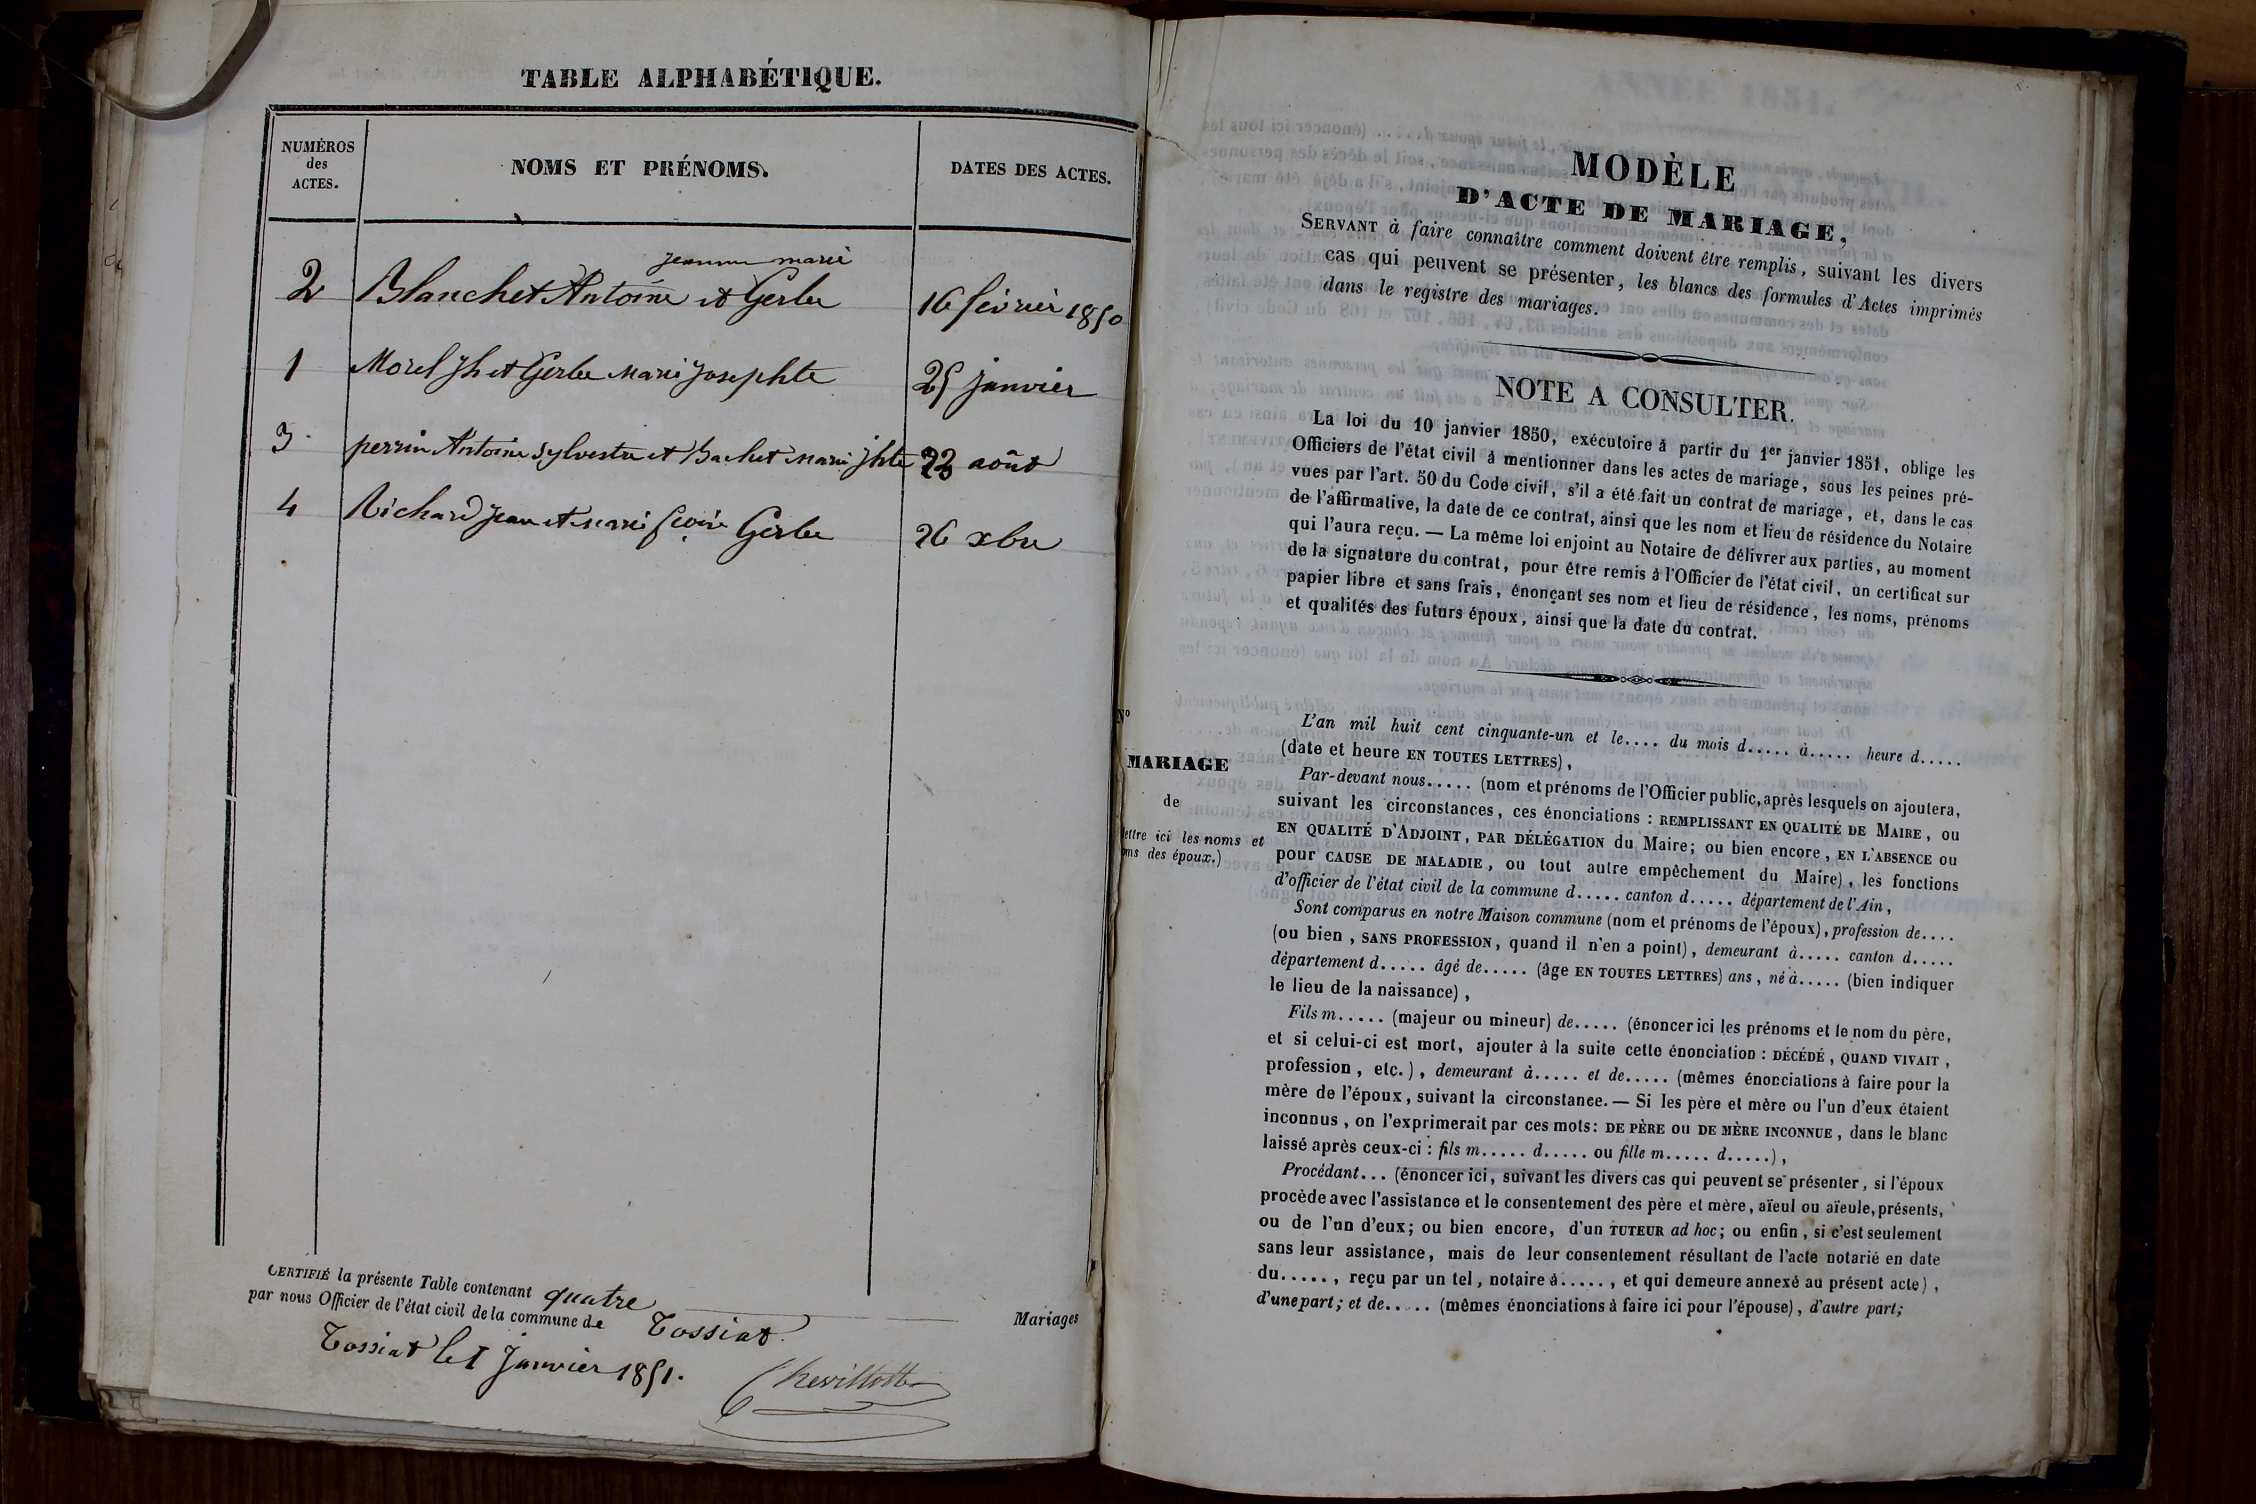 TABLE ALPHABÉTIQUE.
NUMÉROS
des
ACTES.
NOMS ET PRÉNOMS.
DATES DES ACTES.
jeanne marie
2 Blanchet Antoine et Gerbe 16 février 1850
1 Morel Jh et Gerbe Marie Josephte 25 janvier
3 perrin Antoine Sylvestre et Bachet Marie Jhte 23 août
4 Richard Jean et Marie Gerbe 26 xbre
CERTIFIÉ la présente Table contenant quatre Mariages
par nous Officier de l'état civil de la commune de Tossiat.
Tossiat le 1 Janvier 1851.
Chevillotte
MODÈLE
D'ACTE DE MARIAGE,
SERVANT à faire connaître comment doivent être remplis, suivant les divers
cas qui peuvent se présenter, les blancs des formules d'Actes imprimés
dans le registre des mariages.
NOTE A CONSULTER.
La loi du 10 janvier 1850, exécutoire à partir du 1er janvier 1851, oblige les
Officiers de l'état civil à mentionner dans les actes de mariage, sous les peines pré-
vues par l'art. 50 du Code civil, s'il a été fait un contrat de mariage, et, dans le cas
de l'affirmative, la date de ce contrat, ainsi que les nom et lieu de résidence du Notaire
qui l'aura reçu. — La même loi enjoint au Notaire de délivrer aux parties, au moment
de la signature du contrat, pour être remis à l'Officier de l'état civil, un certificat sur
papier libre et sans frais, énonçant ses nom et lieu de résidence, les noms, prénoms
et qualités des futurs époux, ainsi que la date du contrat.
No
MARIAGE
de
ettre ici les noms et
oms des époux.)
L'an mil huit cent cinquante-un et le.... du mois d..... à..... heure d.....
(date et heure EN TOUTES LETTRES),
Par-devant nous..... (nom et prénoms de l'Officier public, après lesquels on ajoutera,
suivant les circonstances, ces énonciations : REMPLISSANT EN QUALITÉ DE MAIRE, ou
EN QUALITÉ D'ADJOINT, PAR DÉLÉGATION du Maire; ou bien encore, EN L'ABSENCE ou
pour CAUSE DE MALADIE, ou tout autre empêchement du Maire), les fonctions
d'officier de l'état civil de la commune d..... canton d..... département de l'Ain,
Sont comparus en notre Maison commune (nom et prénoms de l'époux), profession de....
(ou bien, SANS PROFESSION, quand il n'en a point), demeurant à..... canton d.....
département d..... âgé de..... (âge EN TOUTES LETTRES) ans, né à..... (bien indiquer
le lieu de la naissance),
Fils m..... (majeur ou mineur) de..... (énoncer ici les prénoms et le nom du père,
et si celui-ci est mort, ajouter à la suite cette énonciation : DÉCÉDÉ, QUAND VIVAIT,
profession, etc.), demeurant à..... et de..... (mêmes énonciations à faire pour la
mère de l'époux, suivant la circonstance. — Si les père et mère ou l'un d'eux étaient
inconnus, on l'exprimerait par ces mots: DE PÈRE ou DE MÈRE INCONNUE, dans le blanc
laissé après ceux-ci : fils m..... d..... ou fille m..... d.....),
Procédant... (énoncer ici, suivant les divers cas qui peuvent se présenter, si l'époux
procède avec l'assistance et le consentement des père et mère, aïeul ou aïeule, présents,
ou de l'un d'eux; ou bien encore, d'un TUTEUR ad hoc; ou enfin, si c'est seulement
sans leur assistance, mais de leur consentement résultant de l'acte notarié en date
du....., reçu par un tel, notaire à....., et qui demeure annexé au présent acte),
d'une part; et de..... (mêmes énonciations à faire ici pour l'épouse), d'autre part;